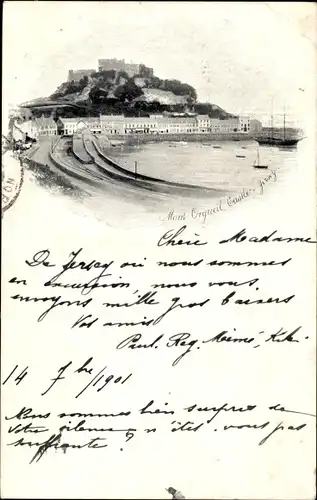 Mont Orgueil Castle, Jersey
Chère Madame
De Jersey où nous sommes
en excursion, nous vous
envoyons mille gros baisers
Vos amis
Paul. Reg. Mémé, Kiki.
14 7bre/1901
Nous sommes bien surpris de
votre silence - n'êtes-vous pas
souffrante?